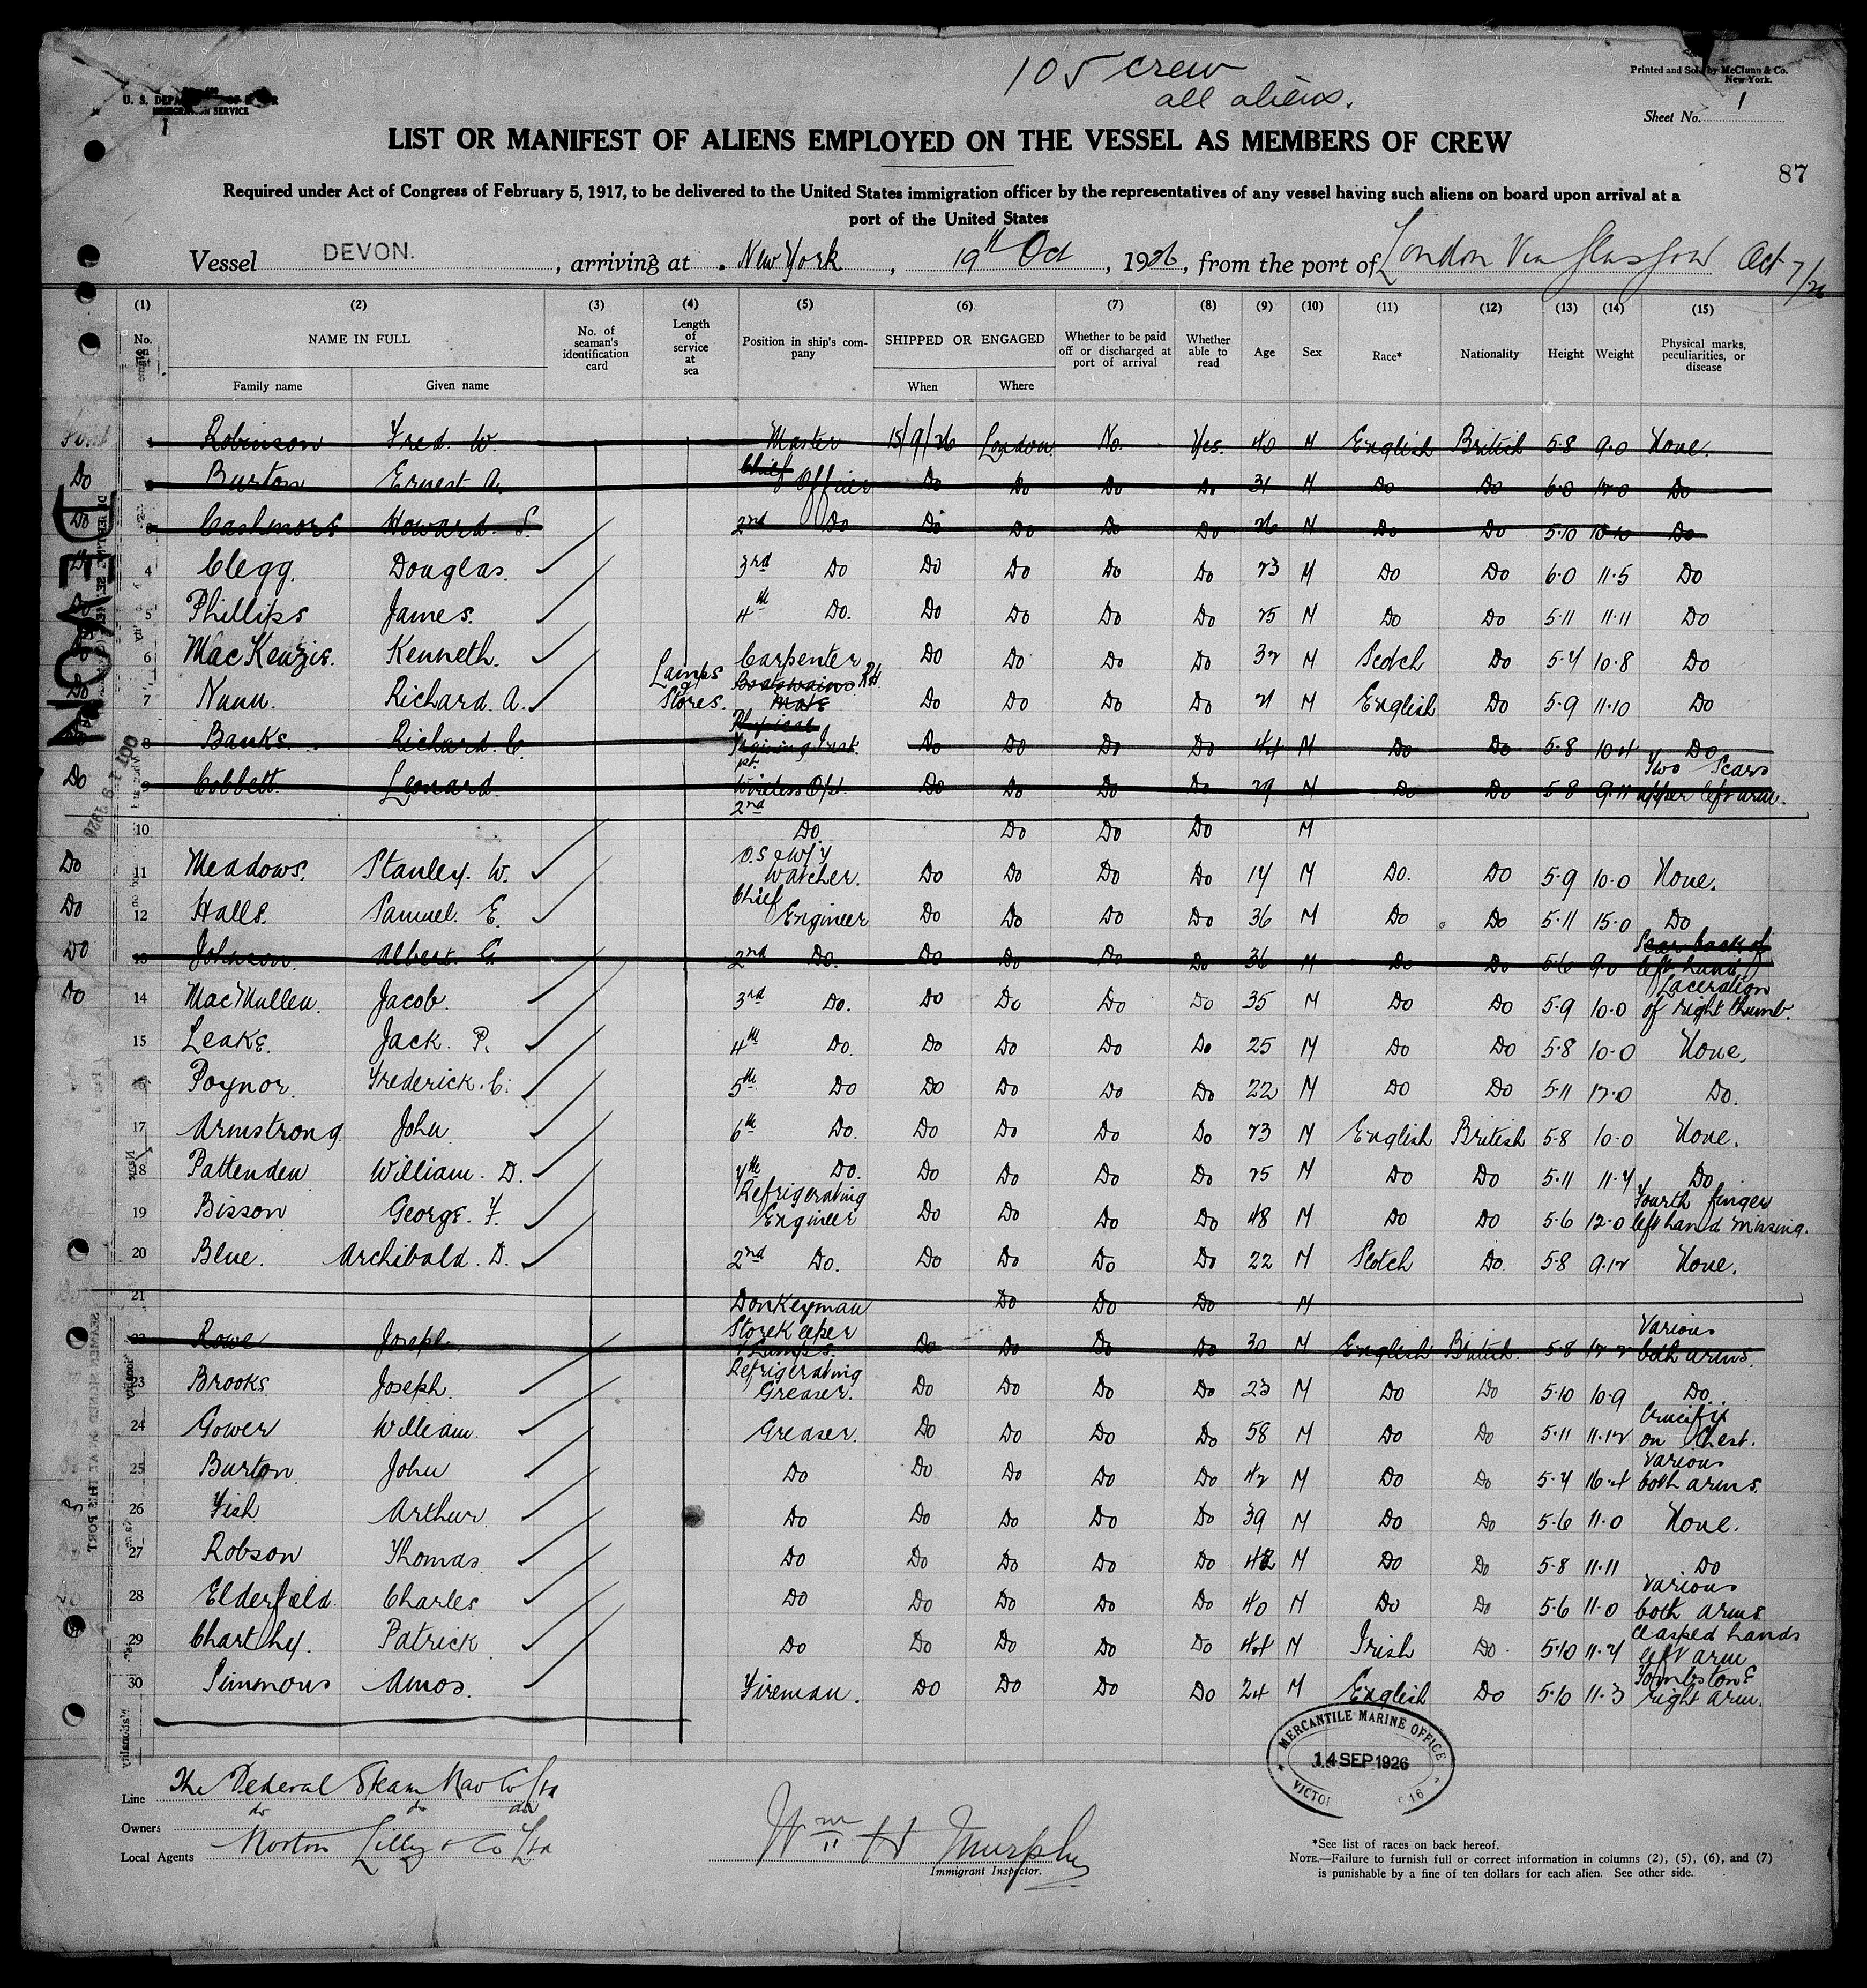 105 crew
all aliens.
Printed and Sold by McClunn & Co.
New York.
U. S. DEPARTMENT OF LABOR
IMMIGRATION SERVICE
Sheet No. 1
LIST OR MANIFEST OF ALIENS EMPLOYED ON THE VESSEL AS MEMBERS OF CREW
87
Required under Act of Congress of February 5, 1917, to be delivered to the United States immigration officer by the representatives of any vessel having such aliens on board upon arrival at a
port of the United States
Vessel DEVON. , arriving at New York , 19th Oct , 1926, from the port of London Via Glasgow Oct 7/26
(1) (2) (3) (4) (5) (6) (7) (8) (9) (10) (11) (12) (13) (14) (15)
No. on NAME IN FULL No. of seaman's identification card Length of service at sea Position in ship's company SHIPPED OR ENGAGED Whether to be paid off or discharged at port of arrival Whether able to read Age Sex Race* Nationality Height Weight Physical marks, peculiarities, or disease
Family name Given name When Where
1 Robinson Fred. W. Master 15/9/26 London. No. Yes. 40 M English British 5·8 9·0 None.
Do Burton Ernest A. Chief Officer Do Do Do Do 31 M Do Do 6·0 12·0 Do
Do Cashmore Howard. S. 2nd Do Do Do Do Do 26 M Do Do 5·10 Do
Do 4 Clegg. Douglas. 3rd Do Do Do Do Do 23 M Do Do 6·0 11·5 Do
Do 5 Phillips James. 4th Do. Do Do Do Do 25 M Do Do 5·11 11·11 Do
Do 6 MacKenzie. Kenneth. Carpenter Do Do Do Do 32 M Scotch Do 5·7 10·8 Do
Do 7 Nunn. Richard. A. Lamps & Stores. Boatswains Mate Do Do Do Do 21 M English Do 5·9 11·10 Do
8 Banks. Richard. C. Physical Training Inst. Do Do Do Do 44 M Do Do 5·8 10·4 Do
Do 9 Cobbett. Leonard. 1st. Wireless Opt. Do Do Do Do 29 M Do Do 5·8 9·11 Two Scars upper left arm.
10 2nd Do. Do Do Do M
Do 11 Meadows. Stanley. W. O.S & W/T Watcher. Do Do Do Do 17 M Do. Do 5·9 10·0 None.
Do 12 Halls. Samuel. E. Chief Engineer Do Do Do Do 36 M Do Do 5·11 15·0 Do
Do 13 Johnson. Albert. G. 2nd Do. Do Do Do Do 36 M Do Do 5·6 9·0 Scar back of left hand
Do 14 MacMullen. Jacob. 3rd Do. Do Do Do Do 35 M Do Do 5·9 10·0 Laceration of right thumb.
15 Leake. Jack. P. 4th Do. Do Do Do Do 25 M Do Do 5·8 10·0 None.
16 Poynor. Frederick. C. 5th Do Do Do Do Do 22 M Do Do 5·11 12·0 Do.
17 Armstrong John 6th Do. Do Do Do Do 23 M English British 5·8 10·0 None.
18 Pattenden William. D. 7th Do. Do Do Do Do 25 M Do Do 5·11 11·7 Do
19 Bisson George. F. Refrigerating Engineer Do Do Do Do 48 M Do Do 5·6 12·0 Fourth finger left hand missing.
20 Blue. Archibald. D. 2nd Do. Do Do Do Do 22 M Scotch Do. 5·8 9·12 None.
21 Donkeyman Do Do Do M
22 Rowe Joseph. Storekeeper & Lamps. Do Do Do Do 30 M English British. 5·8 12·2 Various both arms.
23 Brooks. Joseph. Refrigerating Greaser. Do Do Do Do 23 M Do Do 5·10 10·9 Do.
24 Gower William. Greaser. Do Do Do Do 58 M Do Do 5·11 11·12 Crucifix on Chest.
25 Burton. John Do Do Do Do Do 42 M Do Do 5·7 16·4 Various both arms.
26 Fish Arthur. Do Do Do Do Do 39 M Do Do 5·6 11·0 None.
27 Robson Thomas Do Do Do Do Do 42 M Do Do 5·8 11·11 Do
28 Elderfield. Charles Do Do Do Do Do 40 M Do Do 5·6 11·0 Various both arms
29 Charthy. Patrick Do Do Do Do Do 44 M Irish Do. 5·10 11·7 Clasped hands left arm
30 Simmons Amos. Fireman. Do Do Do Do 24 M English Do 5·10 11·3 Tombstone right arm.
MERCANTILE MARINE OFFICE
14 SEP 1926
Line The Federal Steam Nav Co Ltd
Owners do do do
Local Agents Norton Lilly & Co Ltd
Wm H Murphy
Immigrant Inspector.
*See list of races on back hereof.
NOTE.—Failure to furnish full or correct information in columns (2), (5), (6), and (7)
is punishable by a fine of ten dollars for each alien. See other side.